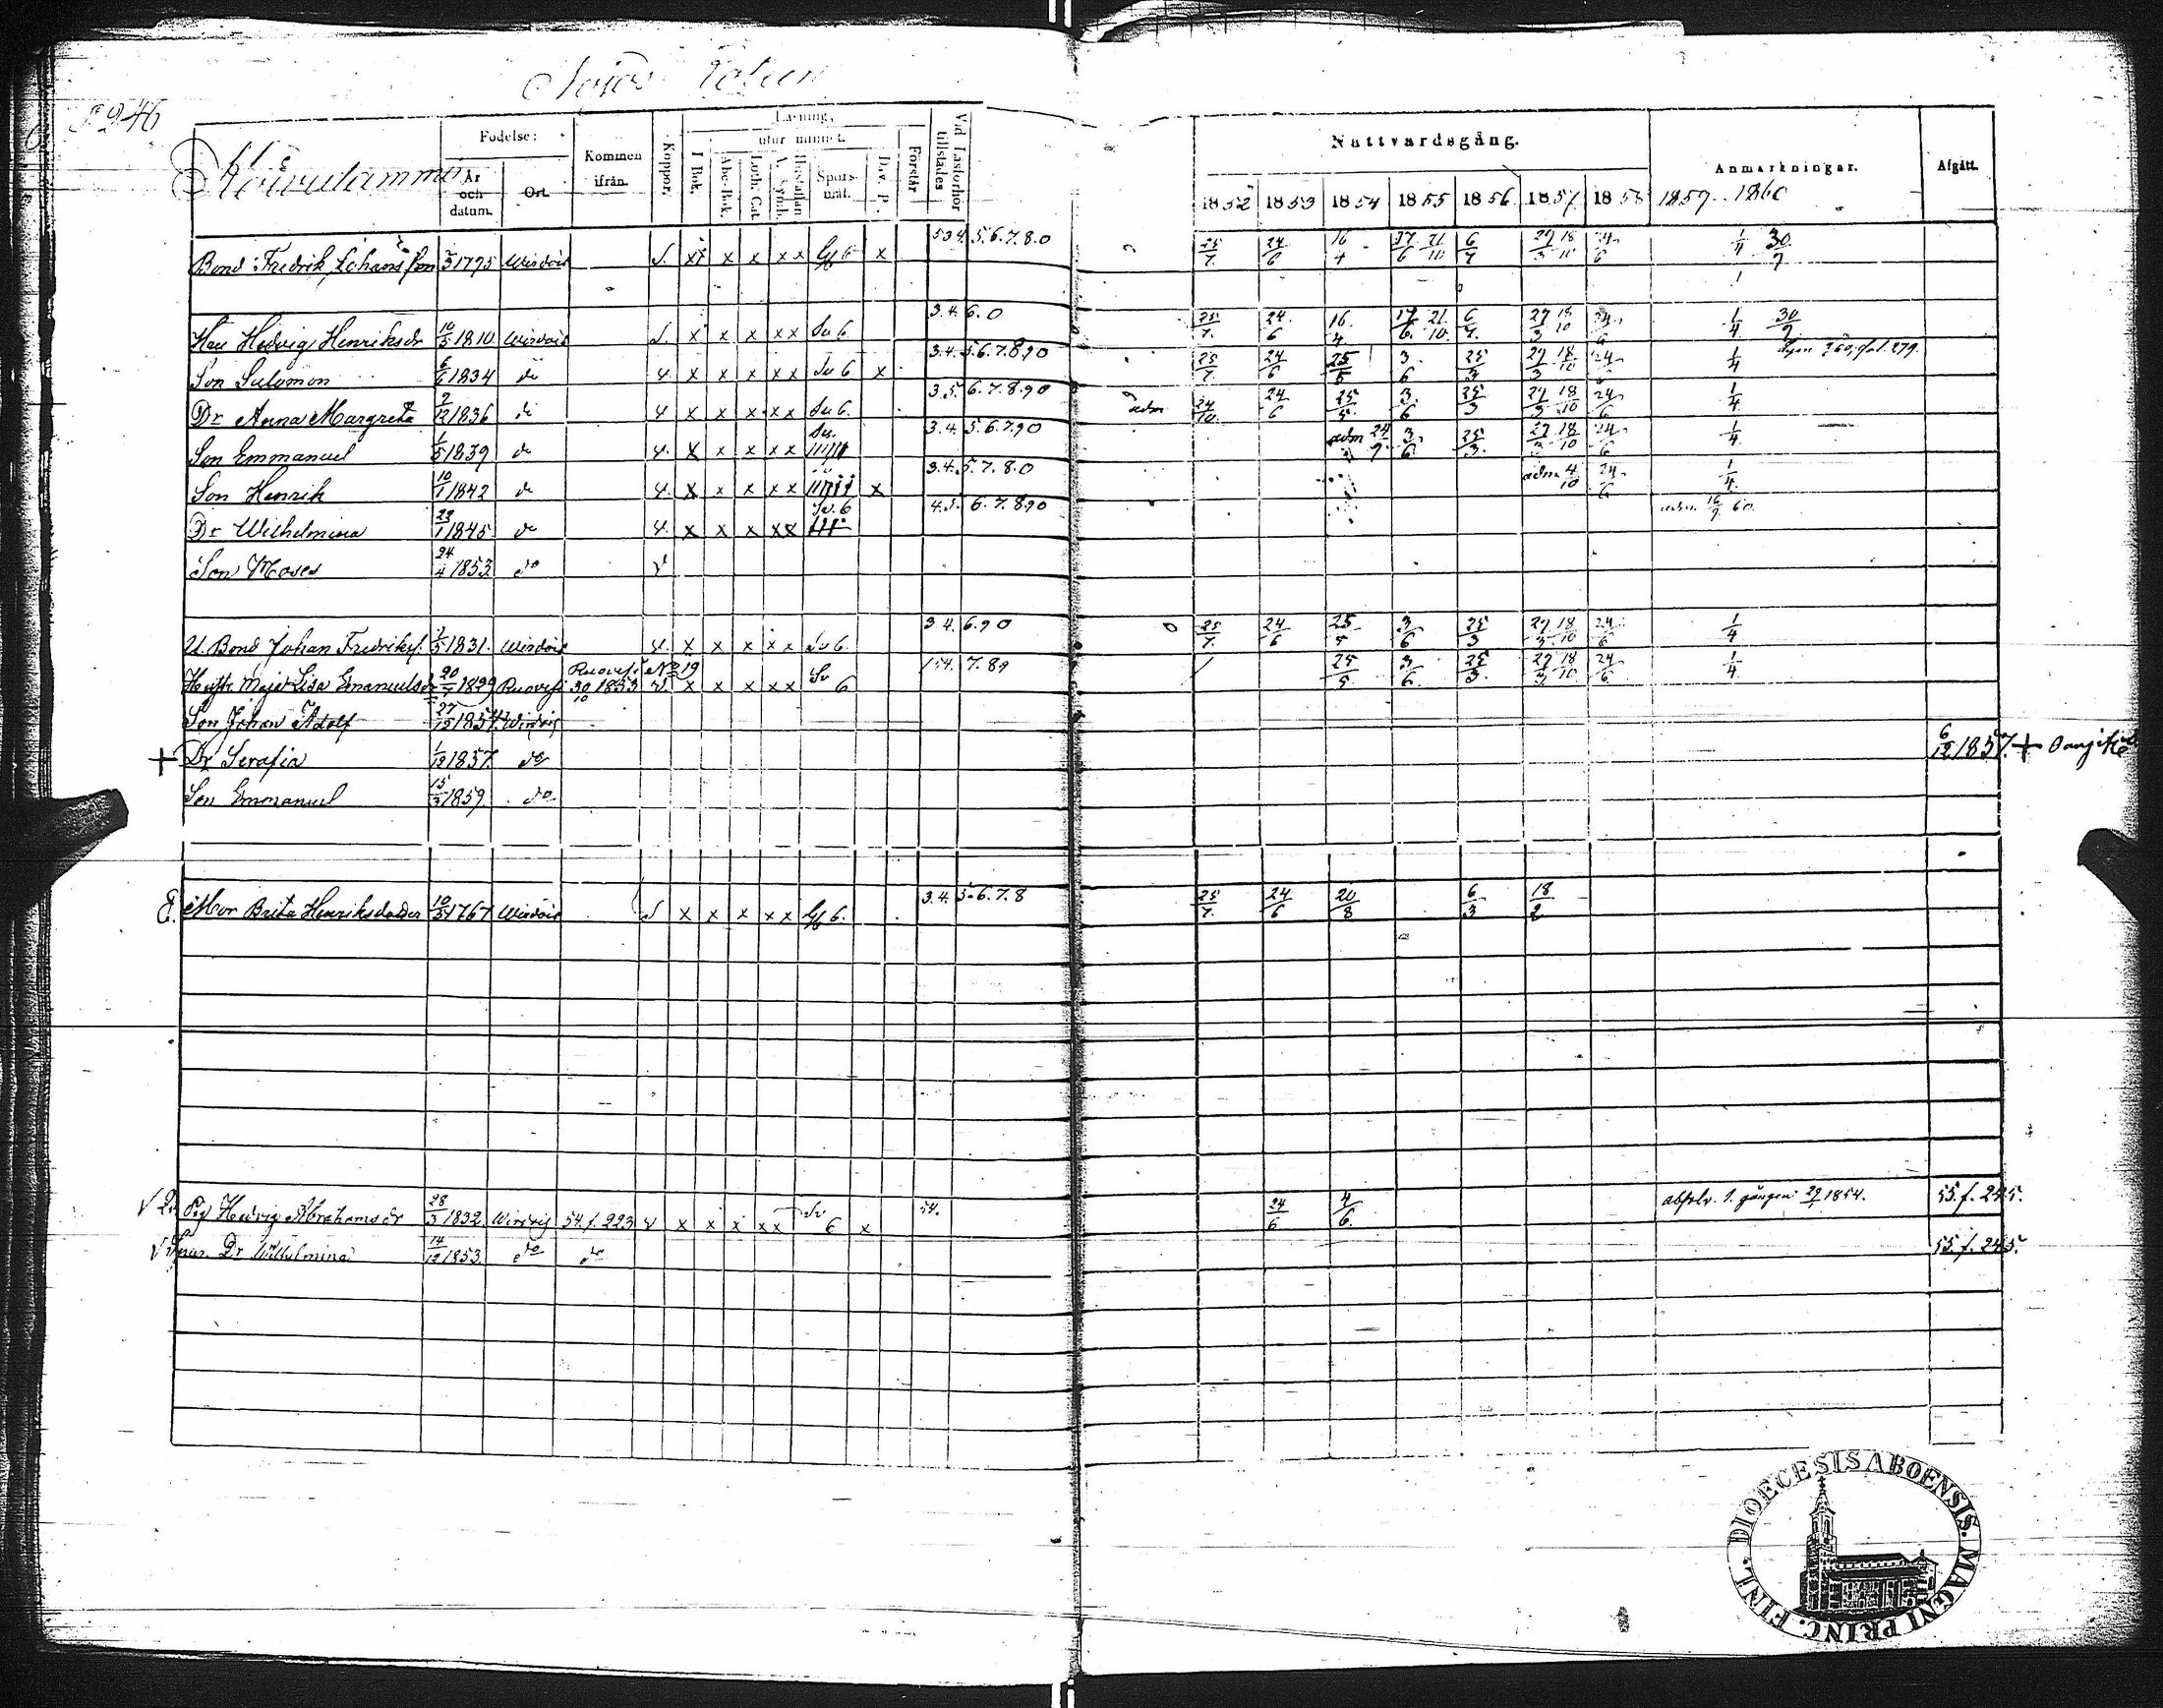 246
Födelse:
År och datum.
Ort.
Kommen ifrån
Koppor.
Läsning,
utur minnet.
I Bok.
Abc-Bok.
Luth. Cat.
Hustaflan A. Symb.
Spörsmål.
Dav. P.
Förstår
Vid Läsförhör tillstädes
Nattvardsgång.
1852 1853 1854 1855 1856 1857 1858 1859 1860
Anmärkningar.
Afgått.
Bond: Fredrik Johansson 1795 Wirdois S. x x x x x x 5.6.7.8.0 25/7 24/6 16/4 21/10 27/3 18/10 24/6 1/4 30/7
Hu Hedvig Henriksdr 10/5 1810 Wirdois S. x x x x x Sv 6 3.4.6.0 25/7 24/6 16/4 17/6 21/10 6/4 27/3 18/10 24/6 1/4 30/7
Son Salomon 6/6 1834 do v x x x x x Sv 6 x 3.4.5.6.7.8.90 25/7 24/6 25/5 3/6 25/3 27/3 18/10 24/6 1/4 fol. 279.
Dr Anna Margreta 2/12 1836 do v x x x x x Sv 6. 3.5.6.7.8.90 adm 24/10 24/6 25/5 3/6 25/3 27/3 18/10 24/6 1/4
Son Emmanuel 1/5 1839 do v. x x x x x 3.4.5.6.7.90 adm 24/9 3/6 25/3 27/3 18/10 24/6 1/4
Son Henrik 10/1 1842 do v. x x x x x x 3.4.5.7.8.0 adm 4/10 24/6 1/4
Dr Wilhelmina 29/1 1845 do v. x x x x x Sv. 6 4.5.6.7.8.90 adm 16/9 60
Son Moses 24/4 1853 do v
U. Bond Johan Fredriks. 1831. Wirdois v. x x x x x Sv 6. 3.4.6.90 25/7 24/6 25/5 3/6 25/3 27/3 18/10 24/6 1/4
Hustr. Maja Lisa Emanuelsdr 20/7 1829 Ruovesi Ruovesi No 19 30/10 1853 v. x x x x x Sv 6 7.89 25/5 3/6 25/3 27/3 18/10 24/6 1/4
Son Johan Adolf 27/12 1854. Wirdois
+ Dr Serafia 1/12 1857. do 6/12 1857. +
Son Emmanuel 15/3 1859 do
E. Mor Brita Henriksdotter 10/5 1767 Wirdois S x x x x x 6. 3.4.5.6.7.8 25/7 24/6 20/8 6/3 18/2
Pig Hedvig Abrahamsdr 28/3 1832. Wirdois 54. f. 223 v x x x x x Sv 6 x 54. 24/6 4/6 absolv. 1. gången 29/1 1854. 55. f. 245.
Dr Wilhelmina 14/12 1853. do do 55. f. 245.
DIOECESIS ABOENSIS. MAGNI PRINC. FINL.